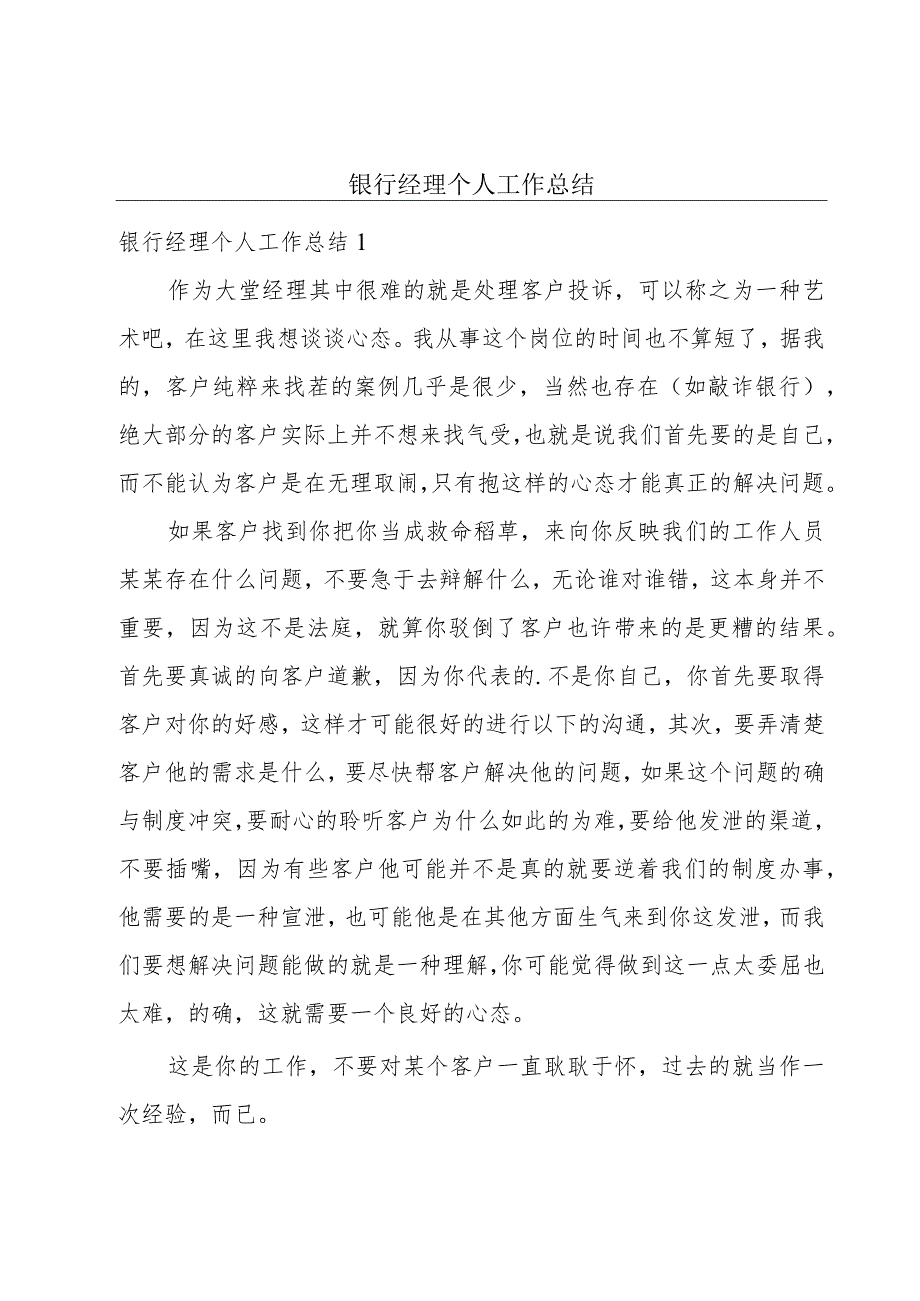 银行经理个人工作总结
银行经理个人工作总结1
作为大堂经理其中很难的就是处理客户投诉，可以称之为一种艺
术吧，在这里我想谈谈心态。我从事这个岗位的时间也不算短了，据我
的，客户纯粹来找茬的案例几乎是很少，当然也存在（如敲诈银行），
绝大部分的客户实际上并不想来找气受，也就是说我们首先要的是自己，
而不能认为客户是在无理取闹，只有抱这样的心态才能真正的解决问题。
如果客户找到你把你当成救命稻草，来向你反映我们的工作人员
某某存在什么问题，不要急于去辩解什么，无论谁对谁错，这本身并不
重要，因为这不是法庭，就算你驳倒了客户也许带来的是更糟的结果。
首先要真诚的向客户道歉，因为你代表的.不是你自己，你首先要取得
客户对你的好感，这样才可能很好的进行以下的沟通，其次，要弄清楚
客户他的需求是什么，要尽快帮客户解决他的问题，如果这个问题的确
与制度冲突，要耐心的聆听客户为什么如此的为难，要给他发泄的渠道，
不要插嘴，因为有些客户他可能并不是真的就要逆着我们的制度办事，
他需要的是一种宣泄，也可能他是在其他方面生气来到你这发泄，而我
们要想解决问题能做的就是一种理解，你可能觉得做到这一点太委屈也
太难，的确，这就需要一个良好的心态。
这是你的工作，不要对某个客户一直耿耿于怀，过去的就当作一
次经验，而已。